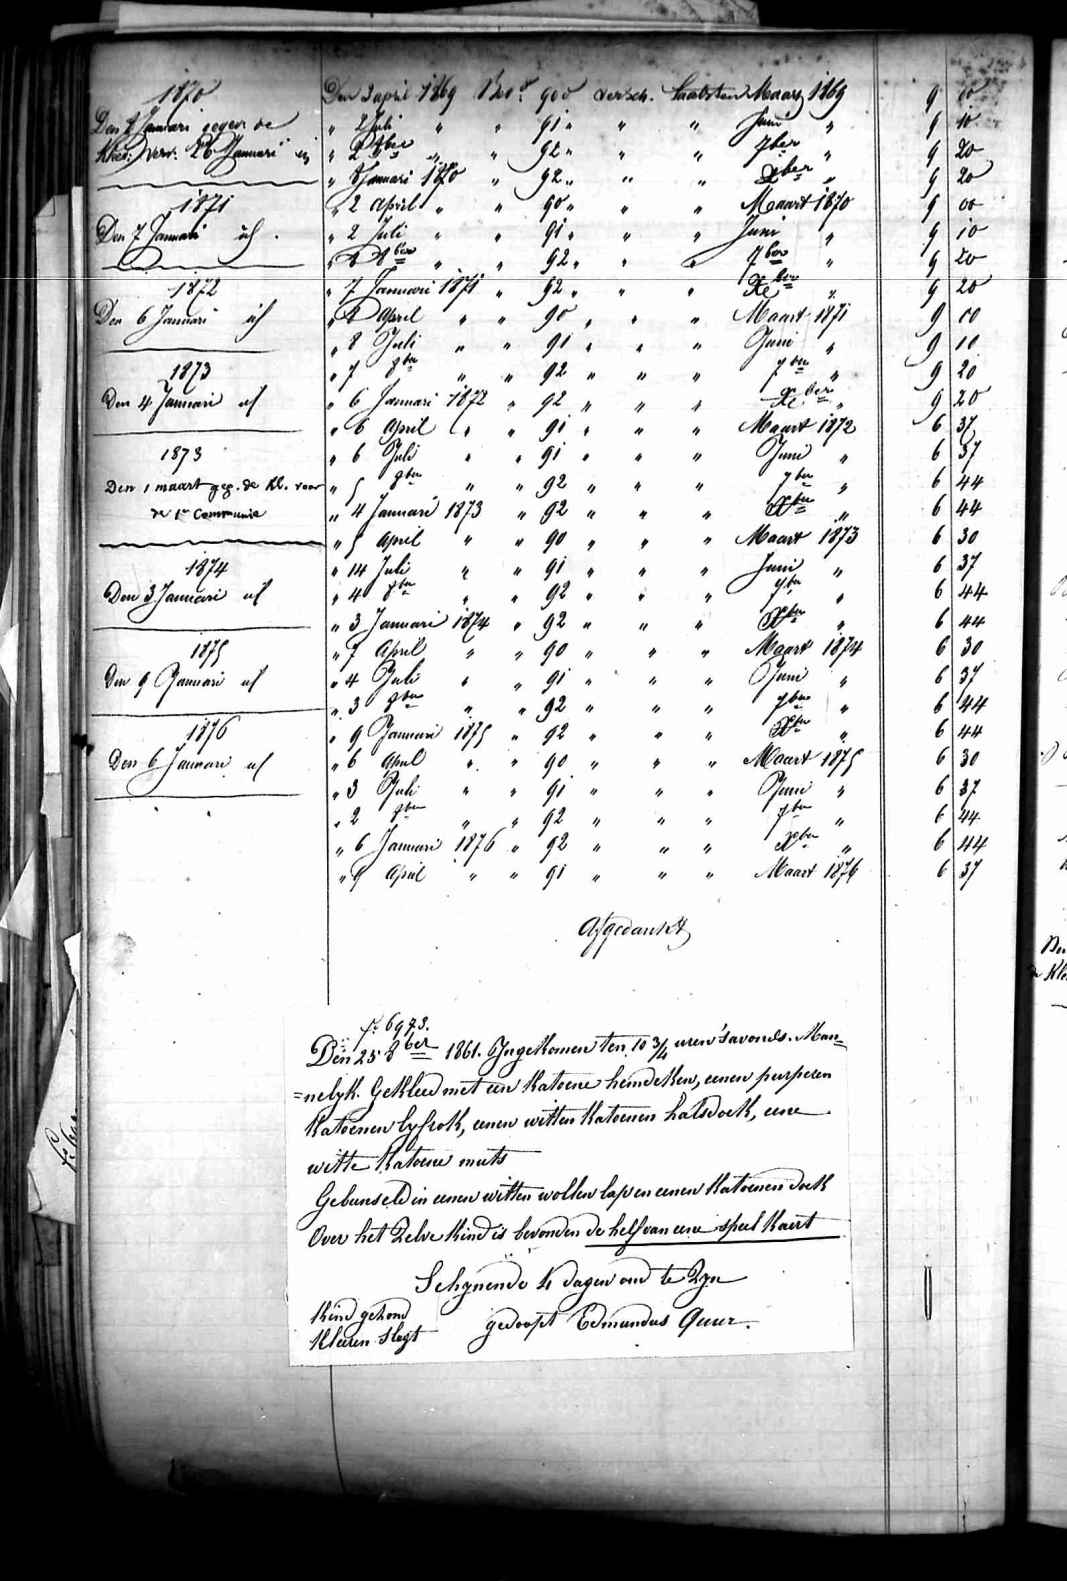 1870
Den 8 Januari gegev. de
Kleed. verv. 26 Januari
1871
Den 7 Januari id.
1872
Den 6 Januari id
1873
Den 4 Januari id
1873
Den 1 maart geg. de Kl. voor
de 1e Communie
1874
Den 3 Januari id
1875
Den 9 Januari id
1876
Den 6 Januari id
Den 3 april 1869 900 versch. laatsten Maart 1869 9 00
" 2 Juli " " 91 " " " Juni " 9 10
" 2 8bre " " 92 " " " 7ber " 9 20
" 8 Januari 1870 " 92 " " " Xber " 9 20
" 2 April " " 90 " " " Maart 1870 9 00
" 2 Juli " " 91 " " " Juni " 9 10
" 8ber " " 92 " " " 7ber " 9 20
" 7 Januari 1871 " 92 " " " Xber " 9 20
" April " " 90 " " " Maart 1871 9 00
" 8 Juli " " 91 " " " Juni " 9 10
" 7 8bre " " 92 " " " 7bre " 9 20
" 6 Januari 1872 " 92 " " " Xber " 9 20
" 6 April " " 91 " " " Maart 1872 6 37
" 6 Juli " " 91 " " " Juni " 6 37
" 5 8bre " " 92 " " " 7bre " 6 44
" 4 Januari 1873 " 92 " " " Xbre " 6 44
" 5 April " " 90 " " " Maart 1873 6 30
" 14 Juli " " 91 " " " Juni " 6 37
" 4 8bre " " 92 " " " 7bre " 6 44
" 3 Januari 1874 " 92 " " " Xbre " 6 44
" 7 April " " 90 " " " Maart 1874 6 30
" 4 Juli " " 91 " " " Juni " 6 37
" 3 8bre " " 92 " " " 7bre " 6 44
" 9 Januari 1875 " 92 " " " Xbre " 6 44
" 6 April " " 90 " " " Maart 1875 6 30
" 3 Juli " " 91 " " " Juni " 6 37
" 2 8bre " " 92 " " " 7bre " 6 44
" 6 Januari 1876 " 92 " " " Xbre " 6 44
" 9 April " " 91 " " " Maart 1876 6 37
Afgedankt
6973.
Den 25 8ber 1861. Ingekomen ten 10 3/4 uren 's avonds. Man-
=nelyk. Gekleed met een katoene hemdeken, eenen purperen
katoenen lyfrok, eenen witten katoenen halsdoek, eene
witte katoene muts
Gebunseld in eenen witten wollen lap en eenen katoenen doek
Over het zelve kind is bevonden de helf van eene speel kaert
Schynende 4 dagen oud te zyn
Kind gezond
Kleeren slegt
gedoopt Edmundus Quur.